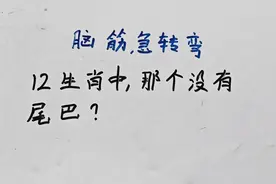 脑筋急转弯
12生肖中,那个没有
尾巴?